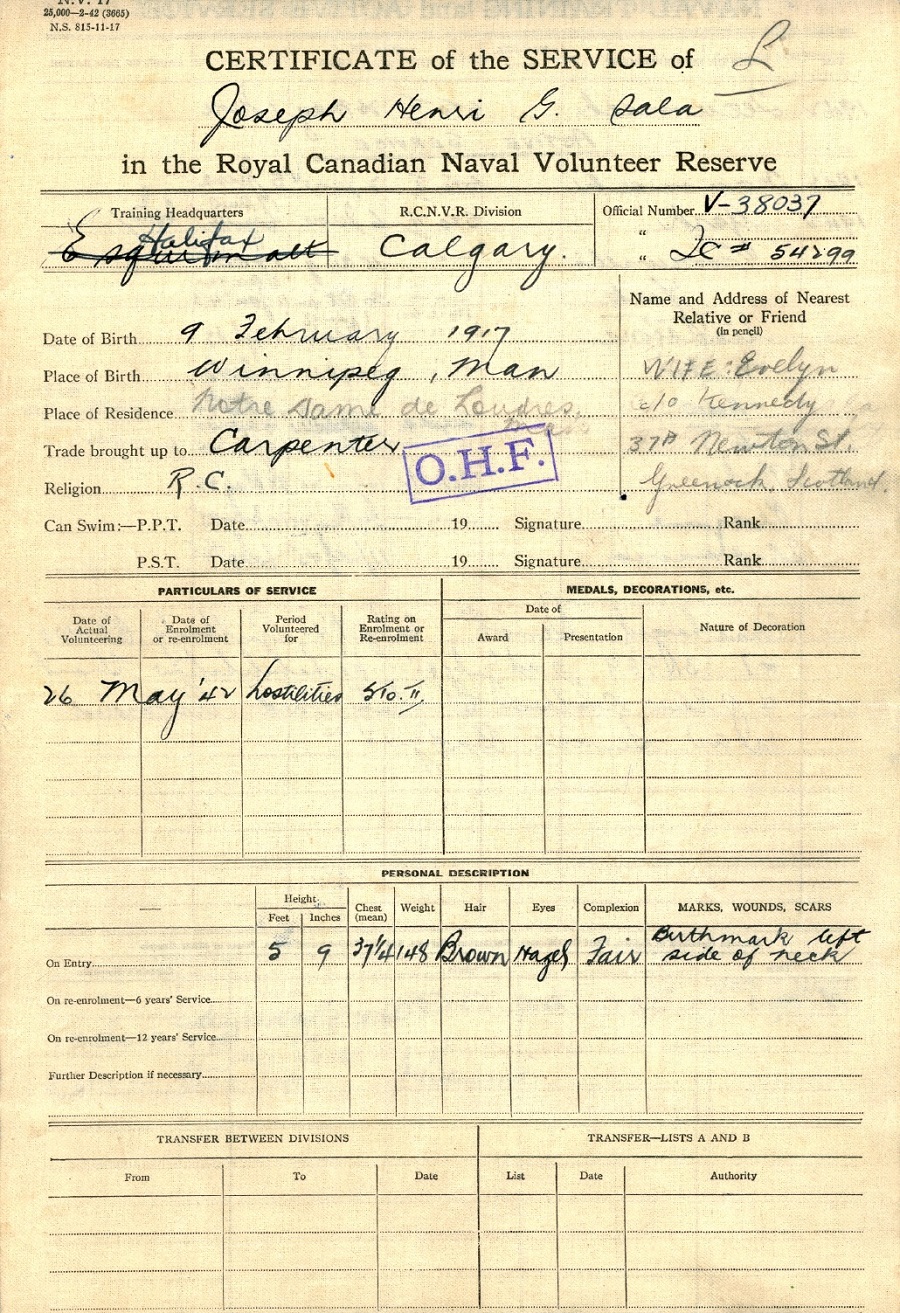 N.V. 17
25,000—2-42 (3665)
N.S. 815-11-17
CERTIFICATE of the SERVICE of
L
Joseph Henri G. Sala
in the Royal Canadian Naval Volunteer Reserve
Training Headquarters
Esquimalt
Halifax
R.C.N.V.R. Division
Calgary.
Official Number V-38037
"
" 54299
Date of Birth 9 February 1917
Place of Birth Winnipeg, Man
Place of Residence Notre Dame de Lourdes, Man
Trade brought up to Carpenter
Religion R.C.
O.H.F.
Name and Address of Nearest
Relative or Friend
(in pencil)
WIFE: Evelyn
c/o Kennedy
37B Newton St.
Greenock, Scotland.
Can Swim:—P.P.T. Date 19 Signature Rank
P.S.T. Date 19 Signature Rank
PARTICULARS OF SERVICE
MEDALS, DECORATIONS, etc.
Date of Actual Volunteering
Date of Enrolment or re-enrolment
Period Volunteered for
Rating on Enrolment or Re-enrolment
Date of
Award
Presentation
Nature of Decoration
26 May '42 hostilities Sto. II
PERSONAL DESCRIPTION
—
Height
Feet
Inches
Chest (mean)
Weight
Hair
Eyes
Complexion
MARKS, WOUNDS, SCARS
On Entry 5 9 37 1/4 148 Brown Hazel Fair Birthmark left side of neck
On re-enrolment—6 years' Service
On re-enrolment—12 years' Service
Further Description if necessary
TRANSFER BETWEEN DIVISIONS
TRANSFER—LISTS A AND B
From To Date List Date Authority